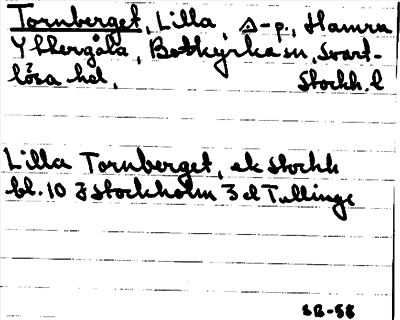 Tornberget, Lilla, △-p., Hamra
Ytterგåla, Botkyrka sn, Svart-
lösa hd, Stockh. l
Lilla Tornberget, ek Stockh
bl. 10 J Stockholm 3 d Tullinge
SB-58